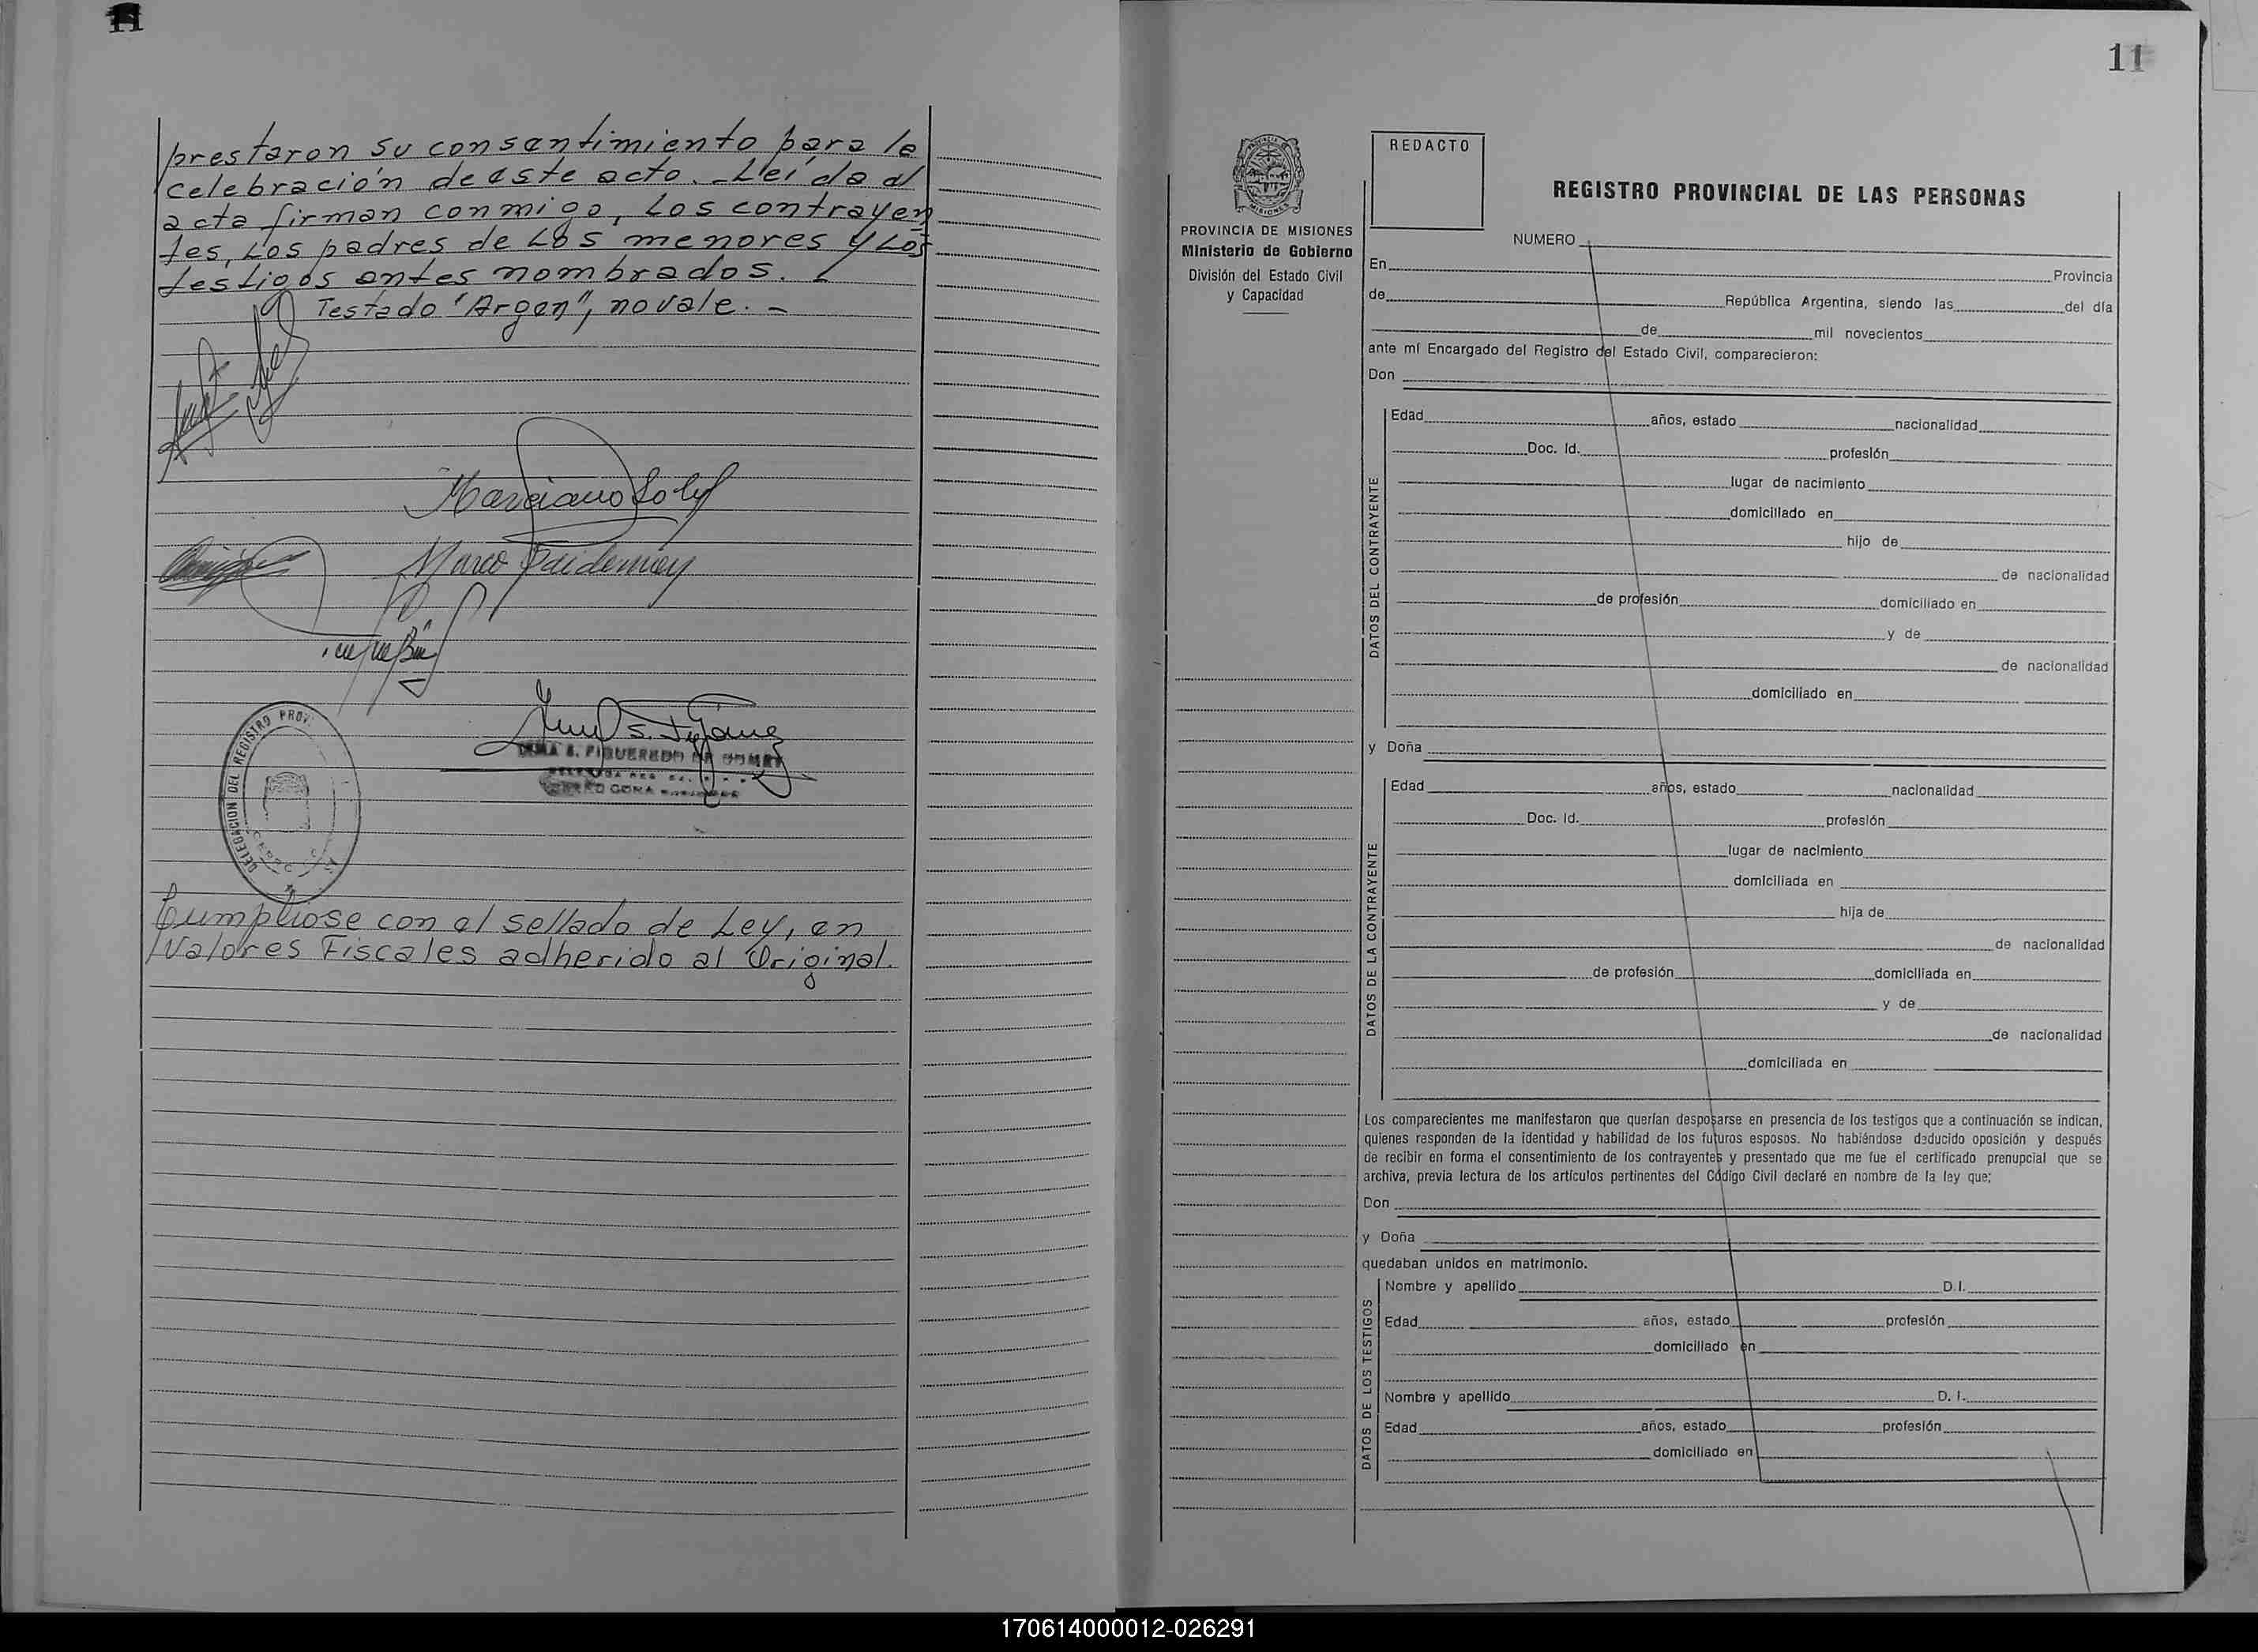 11
prestaron su consentimiento para la
celebración de este acto.- Leída el
acta firman conmigo, Los contrayen
tes, Los padres de Los menores y Los
testigos antes nombrados.
Testado "Argen", no vale. -
Marciano
Marco
DELEGACION DEL REGISTRO PROV.
S. FIGUEREDO DE
Cumpliose con el sellado de Ley, en
Valores Fiscales adherido al Original.
11
REDACTO
REGISTRO PROVINCIAL DE LAS PERSONAS
PROVINCIA DE MISIONES
Ministerio de Gobierno
División del Estado Civil
y Capacidad
NUMERO
En Provincia
de República Argentina, siendo las del día
de mil novecientos
ante mí Encargado del Registro del Estado Civil, comparecieron:
Don
DATOS DEL CONTRAYENTE
Edad años, estado nacionalidad
Doc. Id. profesión
lugar de nacimiento
domiciliado en
hijo de
de nacionalidad
de profesión domiciliado en
y de
de nacionalidad
domiciliado en
y Doña
DATOS DE LA CONTRAYENTE
Edad años, estado nacionalidad
Doc. Id. profesión
lugar de nacimiento
domiciliada en
hija de
de nacionalidad
de profesión domiciliada en
y de
de nacionalidad
domiciliada en
Los comparecientes me manifestaron que querían desposarse en presencia de los testigos que a continuación se indican,
quienes responden de la identidad y habilidad de los futuros esposos. No habiéndose deducido oposición y después
de recibir en forma el consentimiento de los contrayentes y presentado que me fue el certificado prenupcial que se
archiva, previa lectura de los artículos pertinentes del Código Civil declaré en nombre de la ley que;
Don
y Doña
quedaban unidos en matrimonio.
DATOS DE LOS TESTIGOS
Nombre y apellido D.I.
Edad años, estado profesión
domiciliado en
Nombre y apellido D. I.
Edad años, estado profesión
domiciliado en
170614000012-026291